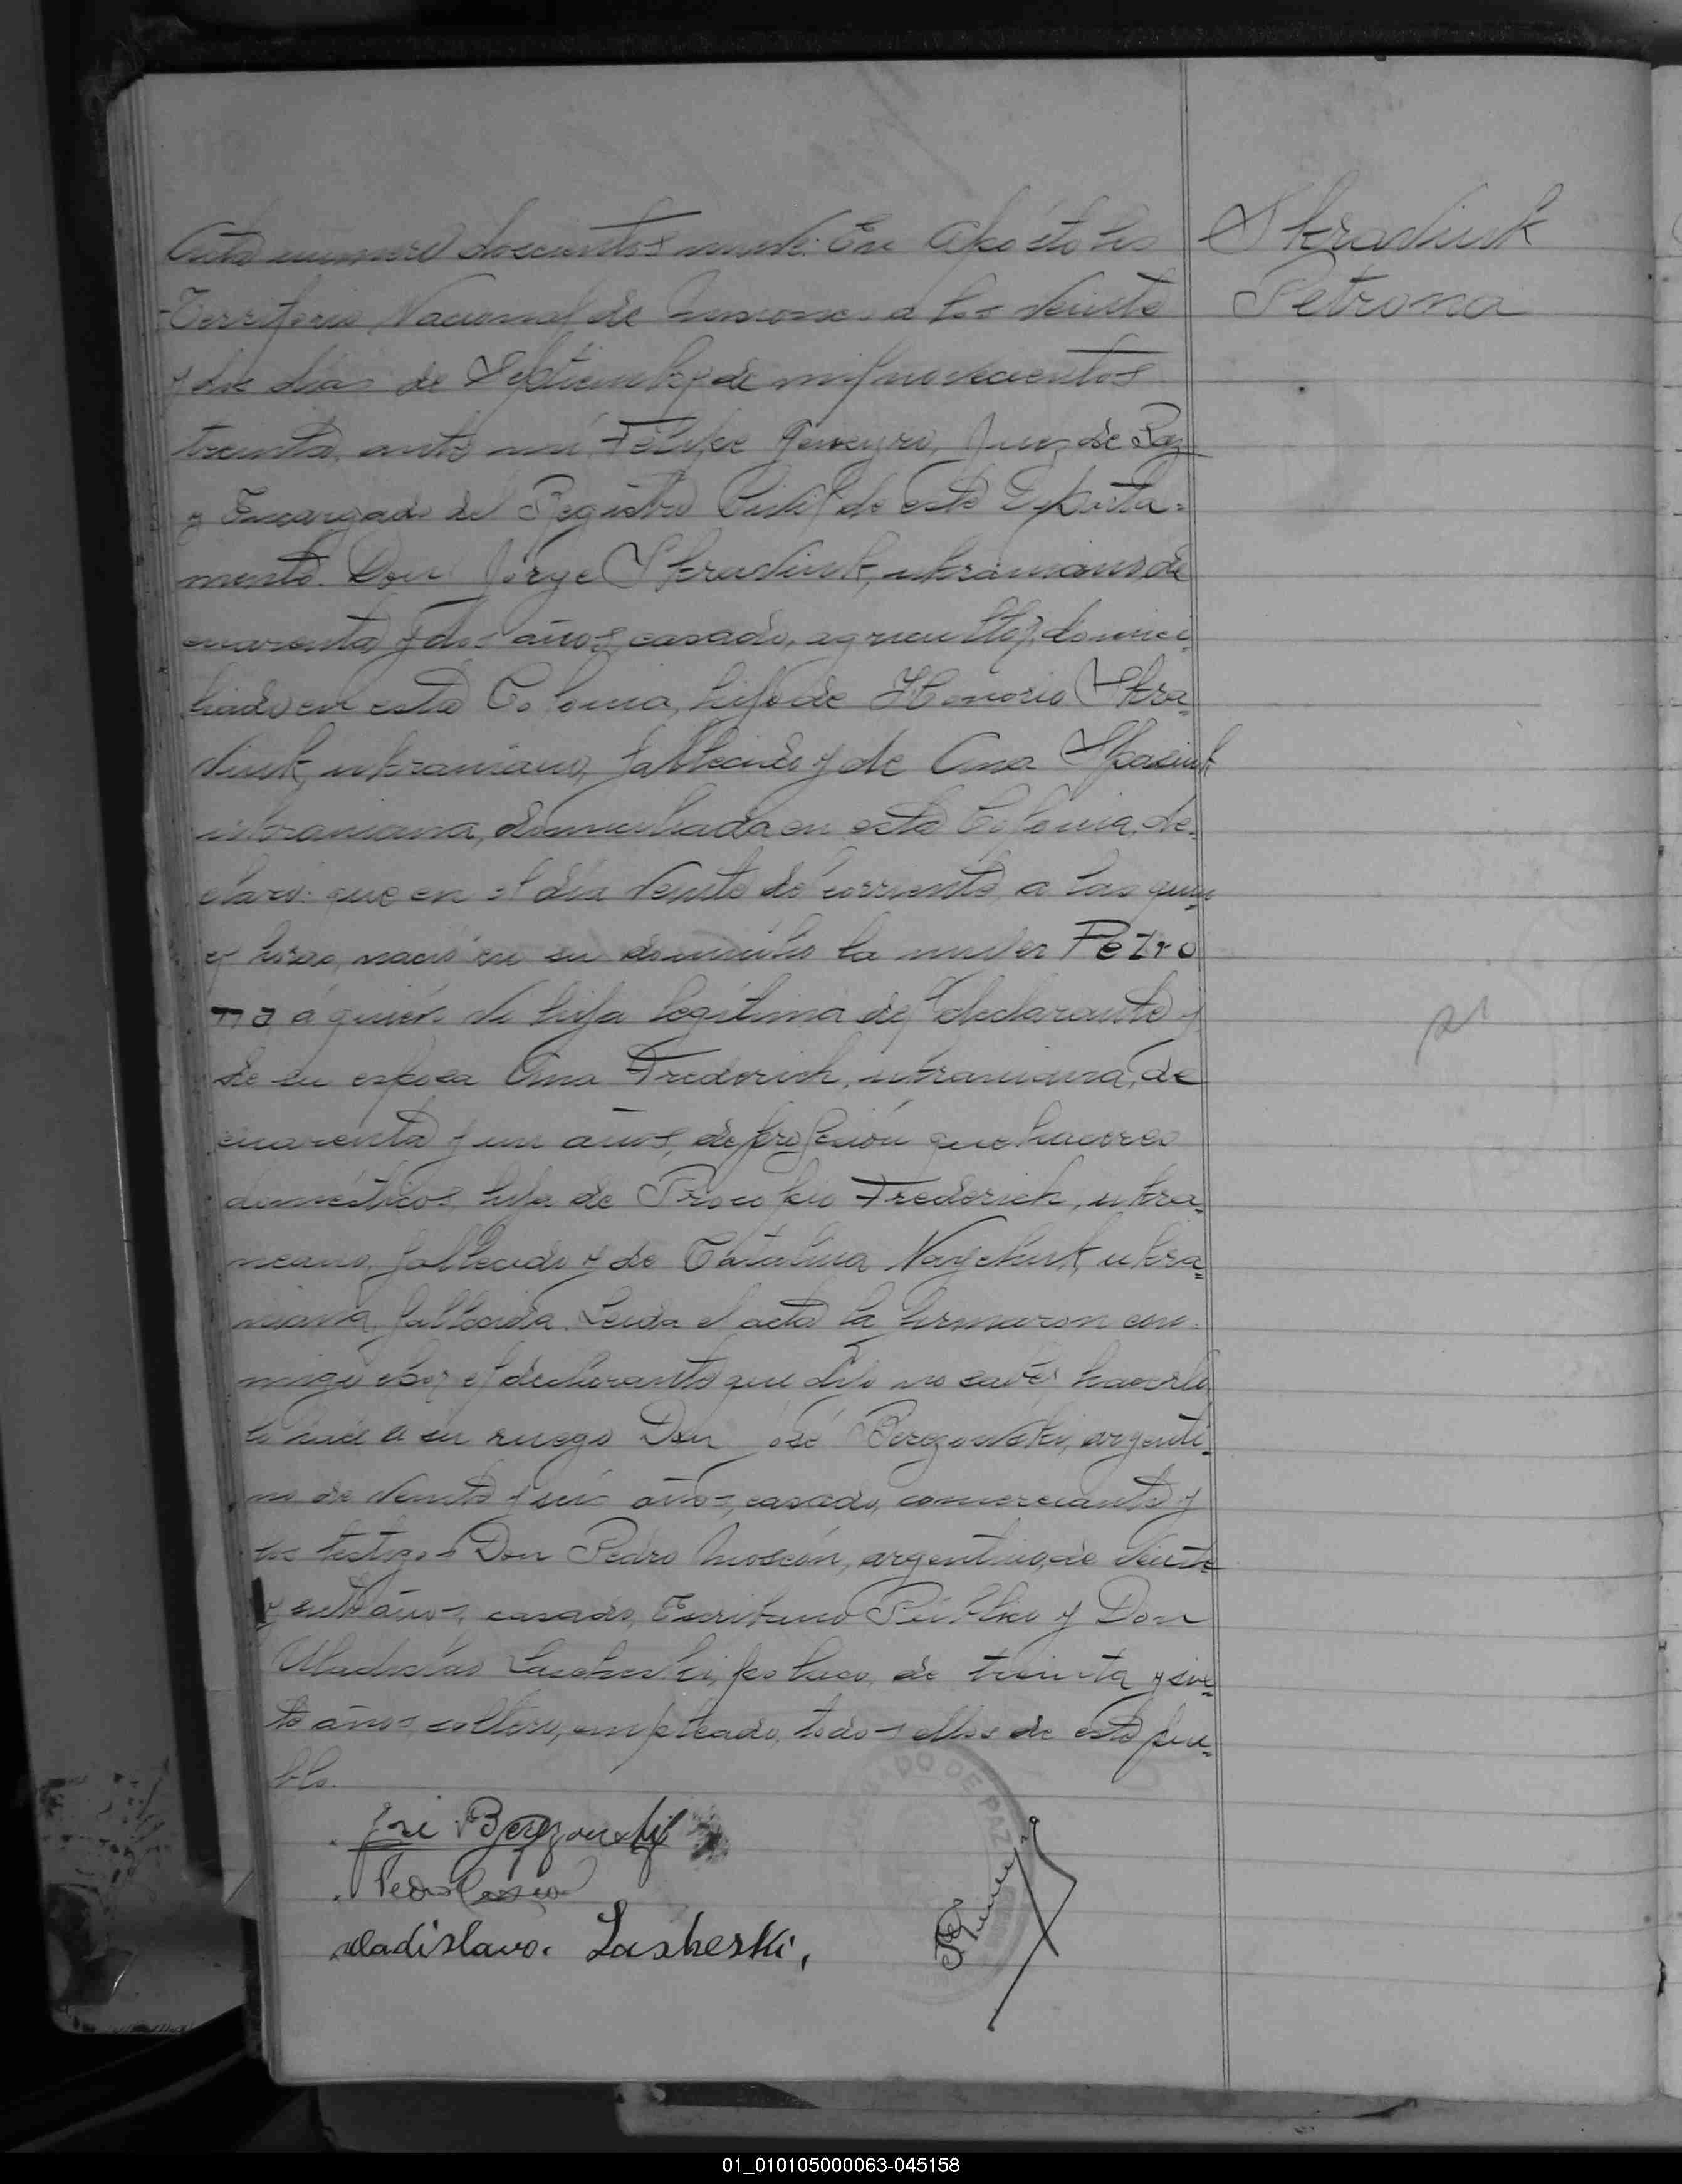 Acta numero doscientos nueve: En Apóstoles
Skradiuk
Territorio Nacional de Misiones a los veinte
Petrona
y dos dias de Septiembre de mil novecientos
treinta, ante mi Felipe Juez de Paz
y Encargado del Registro Civil de este Departa=
mento. Don Jorge Skradiuk, ukraniano de
cuarenta y dos años, casado, agricultor, domici=
liado en esta Colonia, hijo de Honorio Skra=
diuk, ukraniano, fallecido y de Ana Spasiuk
ukraniana, domiciliada en esta Colonia, de=
claró: que en el dia veinte del corriente, a las quin=
ce horas, nació en su domicilio la mujer Petro
na á quién dá hija legítima del declarante y
de su esposa Ana Frederich, ukraniana, de
cuarenta y un años, de profesión quehaceres
domésticos, hija de Procopio Frederich, ukra=
niano, fallecido y de Catalina ukra=
niana, fallecida. Leida el acta la firmaron con=
migo el declarante que dijo no saber hacerlo
lo hace a su ruego Don José Berezowski, argenti=
no de veinte y seis años, casado, comerciante y
los testigos Don Pedro Moscón, argentino, de veinte
y siete años, casado, Escribano Público y Don
Uladislao polaco, de treinta y sie=
te años, soltero, empleado, todos ellos de este pue=
blo.
José Berezowski
Pedro
Uladislavo. Lasheski,
JUZGADO DE PAZ
01_010105000063-045158